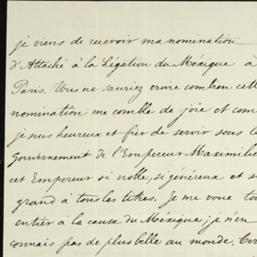 je viens de recevoir ma nomination
d'Attaché à la Légation du Méxique à
Paris. Vous ne sauriez croire combien cette
nomination me comble de joie et com
je suis heureux et fier de servir sous le
Gouvernement de l'Empereur Maximilie
cet Empereur si noble, si généreux et s
grand à tous les titres. Je me voue to
entier à la cause du Méxique; je n'en
connais pas de plus belle au monde.